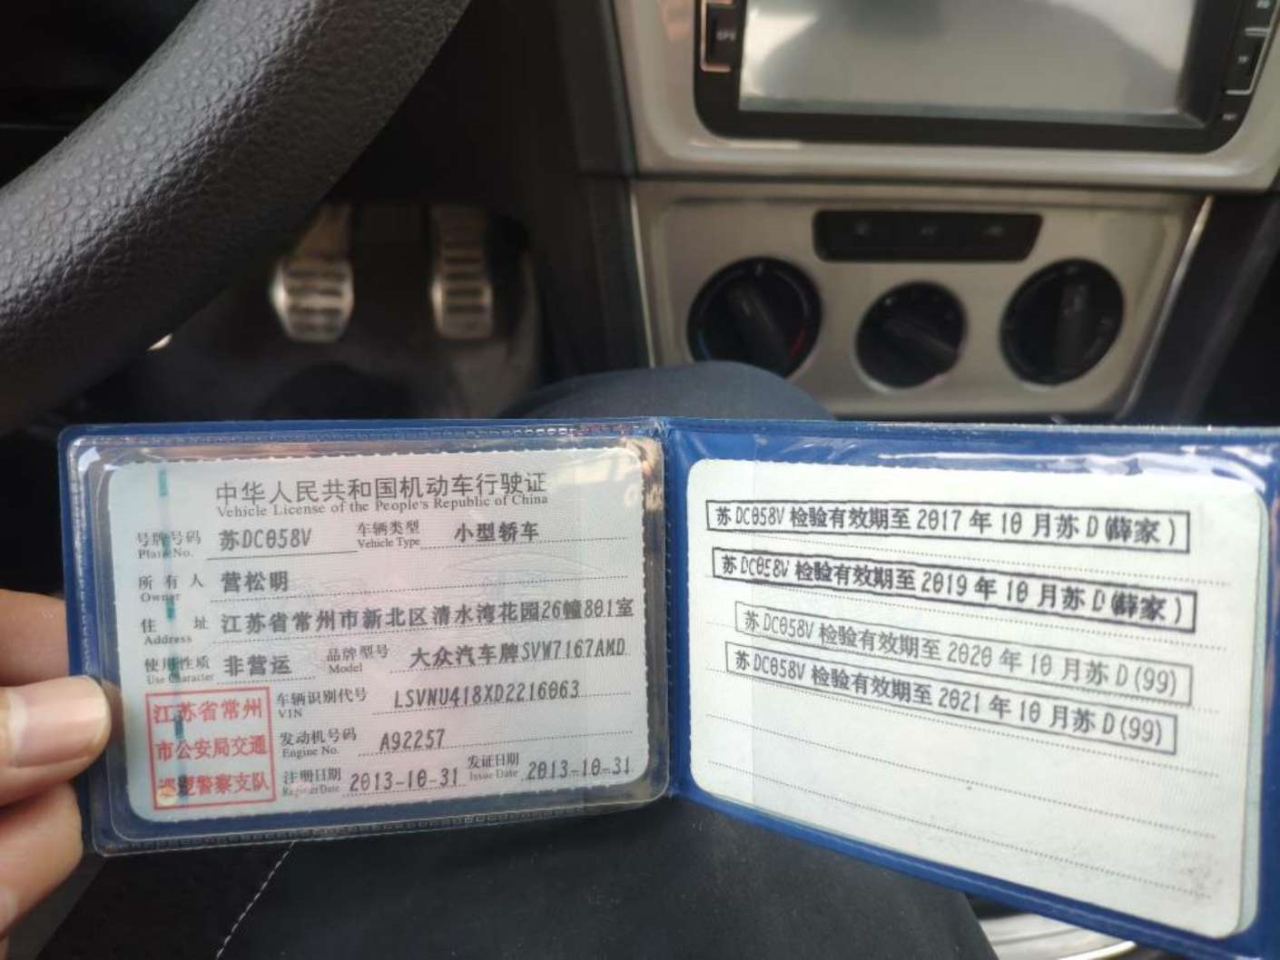 中华人民共和国机动车行驶证
Vehicle License of the People's Republic of China
号牌号码 苏DC058V 车辆类型 小型轿车
Plate No. Vehicle Type
所有人 营松明
Owner
住址 江苏省常州市新北区清水湾花园26幢801室
Address
使用性质 非营运 品牌型号 大众汽车牌SVW7167AMD
Use Character Model
江苏省常州
市公安局交通
巡逻警察支队
车辆识别代号 LSVNU418XD2216063
VIN
发动机号码 A92257
Engine No.
注册日期 2013-10-31 发证日期 2013-10-31
Register Date Issue Date
苏DC058V检验有效期至2017年10月苏D(薛家)
苏DC058V检验有效期至2019年10月苏D(薛家)
苏DC058V检验有效期至2020年10月苏D(99)
苏DC058V检验有效期至2021年10月苏D(99)